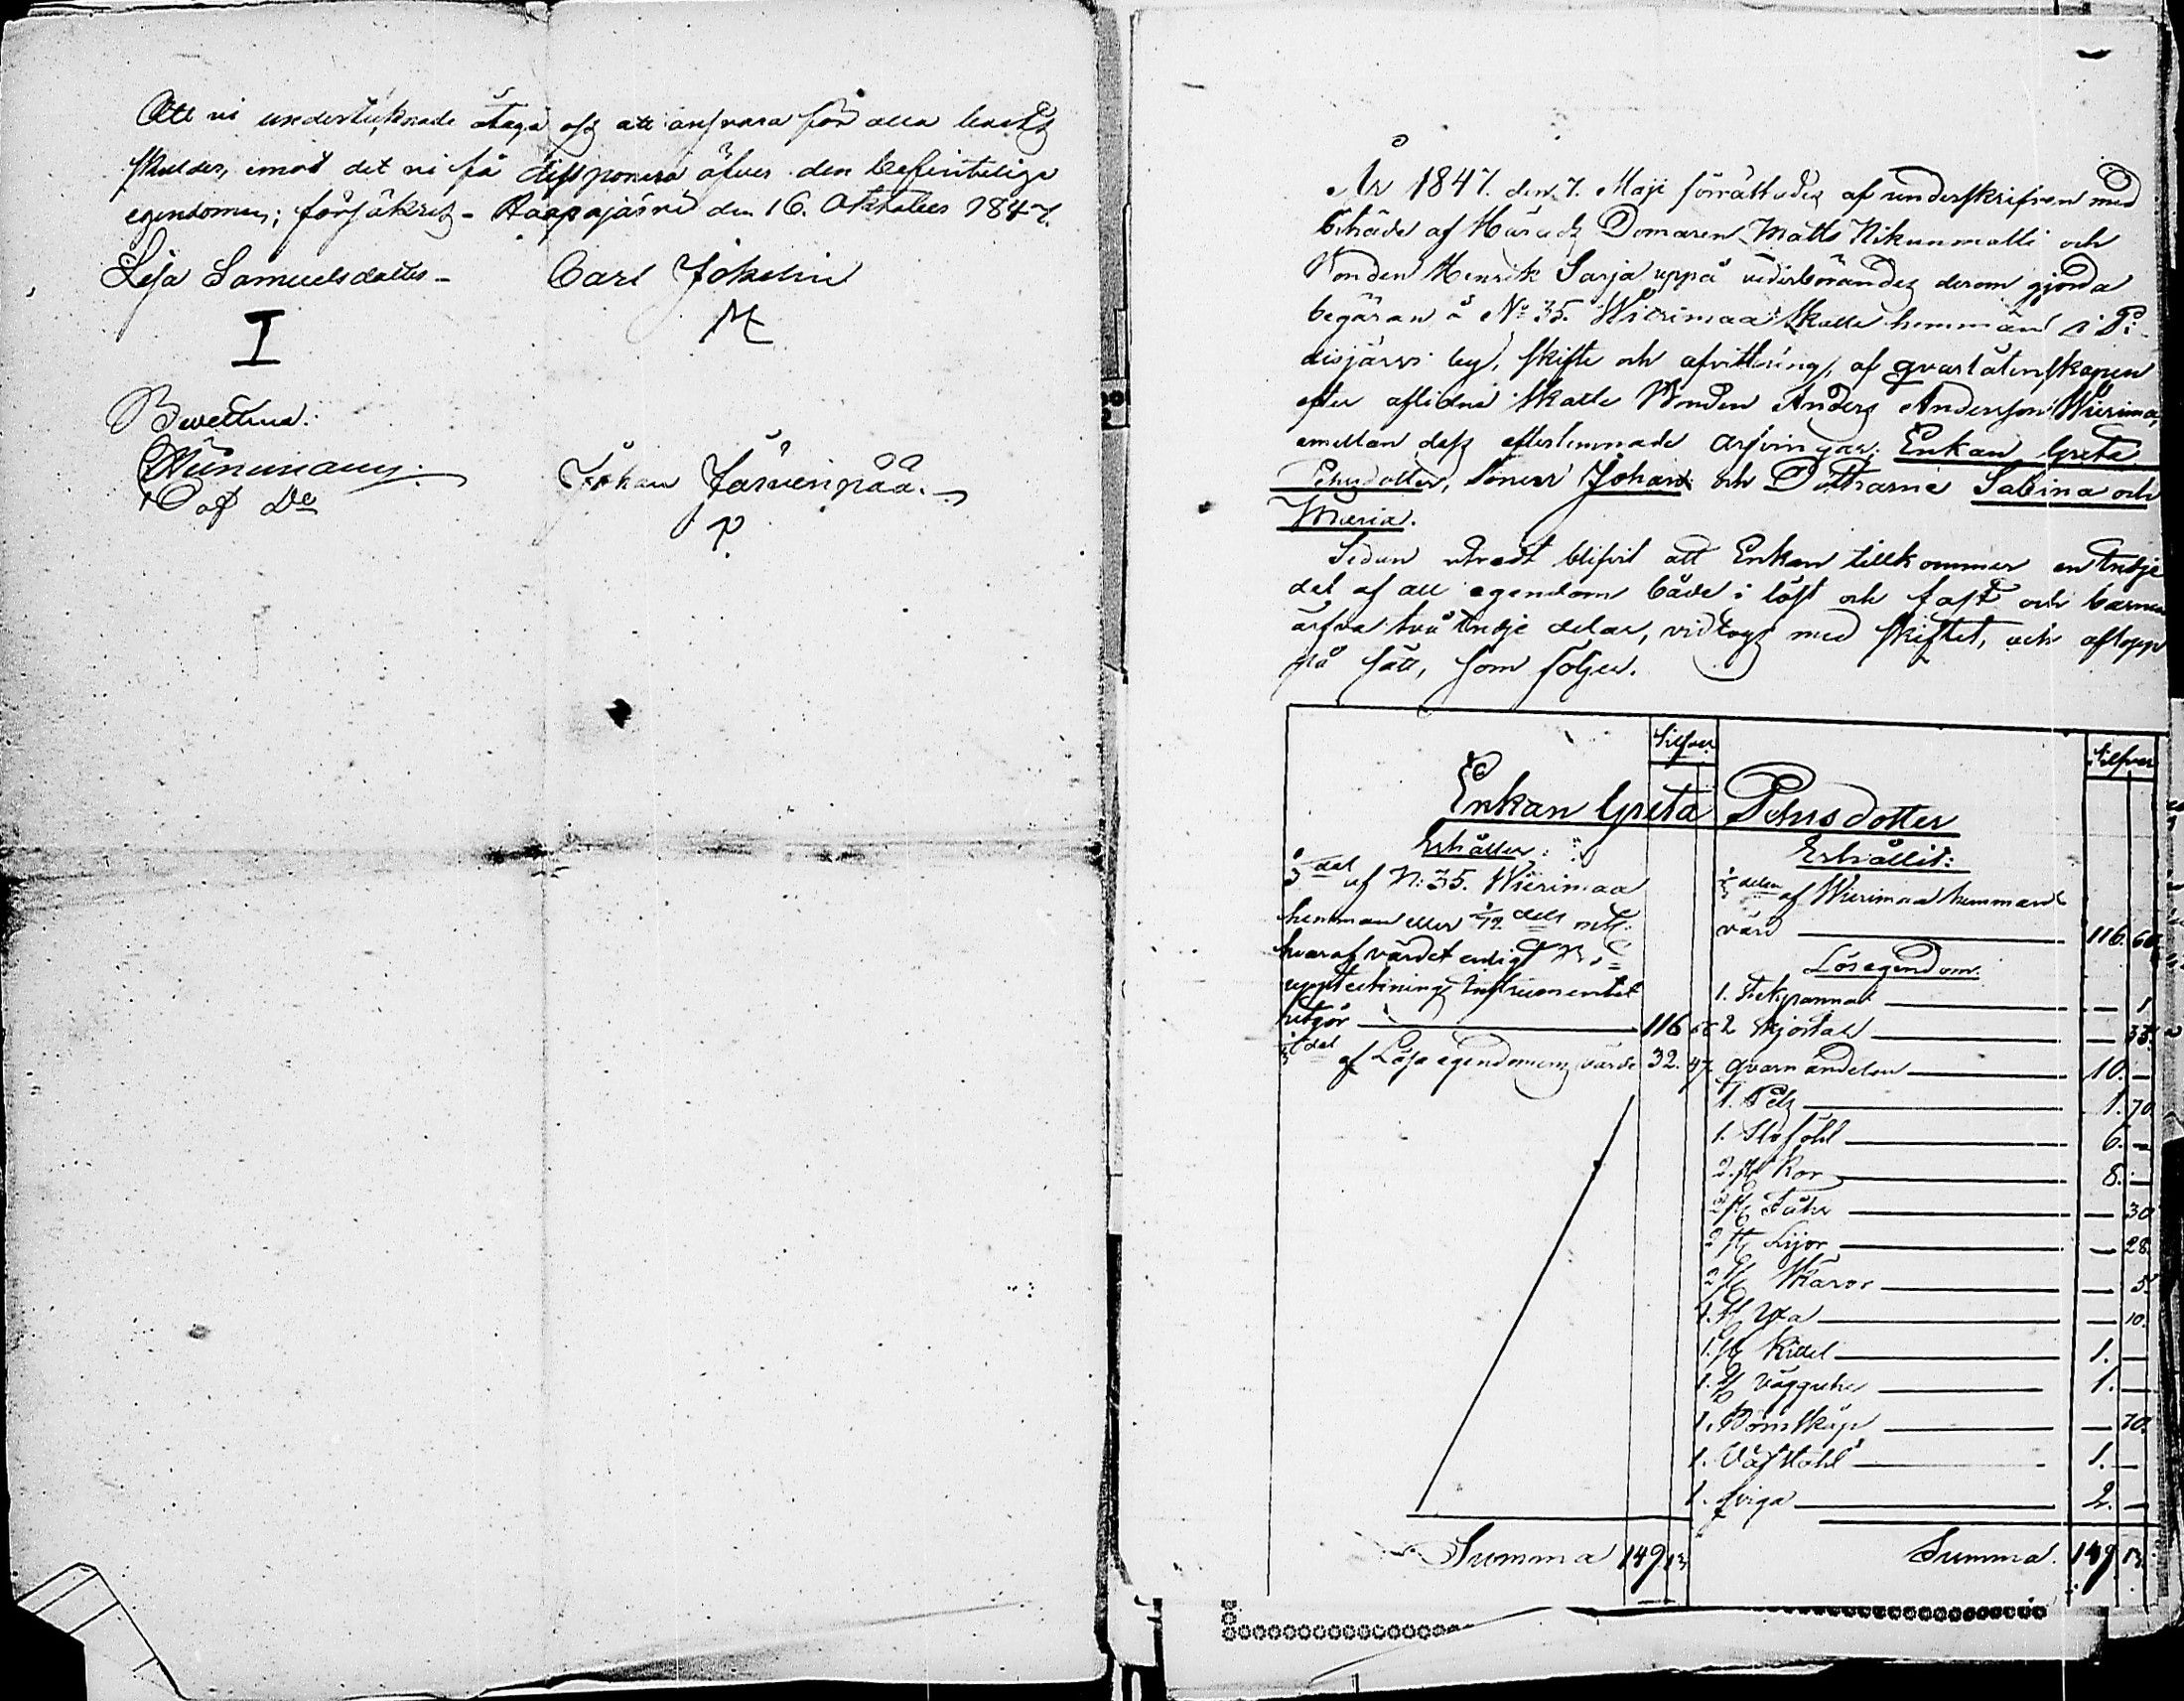 Att vi undertecknade åtaga oss att ansvara för alla boets
skulder, emot det vi få disponera öfver den befinteliga
egendomen; försäkrets - Haapajärvi den 16. Oktober 1847.
Lisa Samuelsdotter - Carl Jokelin
I M
Bevittna:
Johan Järvenpää.
År 1847. den 7. Maji förrättades af underskrifven med
biträde af Härads Domaren Matts Nikunmatti och
Bonden Henrik Sarja uppå vederbörandes derom gjorda
begäran å No 35. Wierimaa Skatte hemman i Pi-
disjärvi by, skifte och afvittring, af qvarlåtenskapen
efter aflidne Skatte Bonden Anders Andersson Wierimaa,
emellan dess efterlemnade arfvingar, Enkan Greta
Pehrsdotter, Sonen Johan och Döttrarne Sabina och
Maria.
Sedan utredt blifvit att Enkan tillkommer en tredje
del af all egendom både i löst och fast och barnen
ärfva två tredje delar, vidtogs med skiftet, och aflopp
på sätt, som följer.
Silfver Silfver
Enkan Greta Pehrsdotter
Erhåller: Erhållit:
1/3 del af N: 35. Wierimaa
hemman eller 1/12 dels mtl.
hvaraf värdet enligt
upptecknings Instrumentet
utgör 116 66
1/3 del af Lösa egendomens värde 32. 47
1/3 delen af Wierimaa hemmans
värd 116. 66
Lösegendom.
1. Stekpanna — 1
2 Skjortor — 33.
qvarn andelen 10. —
1. Pels 1. 70
1. Stoföhl 6. —
2. st Kor 8. —
2 st Får — 30
2 st Lijor — 28.
2 st Skäror — 5.
1. st Yxa — 10.
1. st Kittel 1. —
1. st Vägguhr 1. —
1. — 70.
1. Väfstohl 1. —
1. qviga 2. —
Summa 149 13
Summa. 149 13.